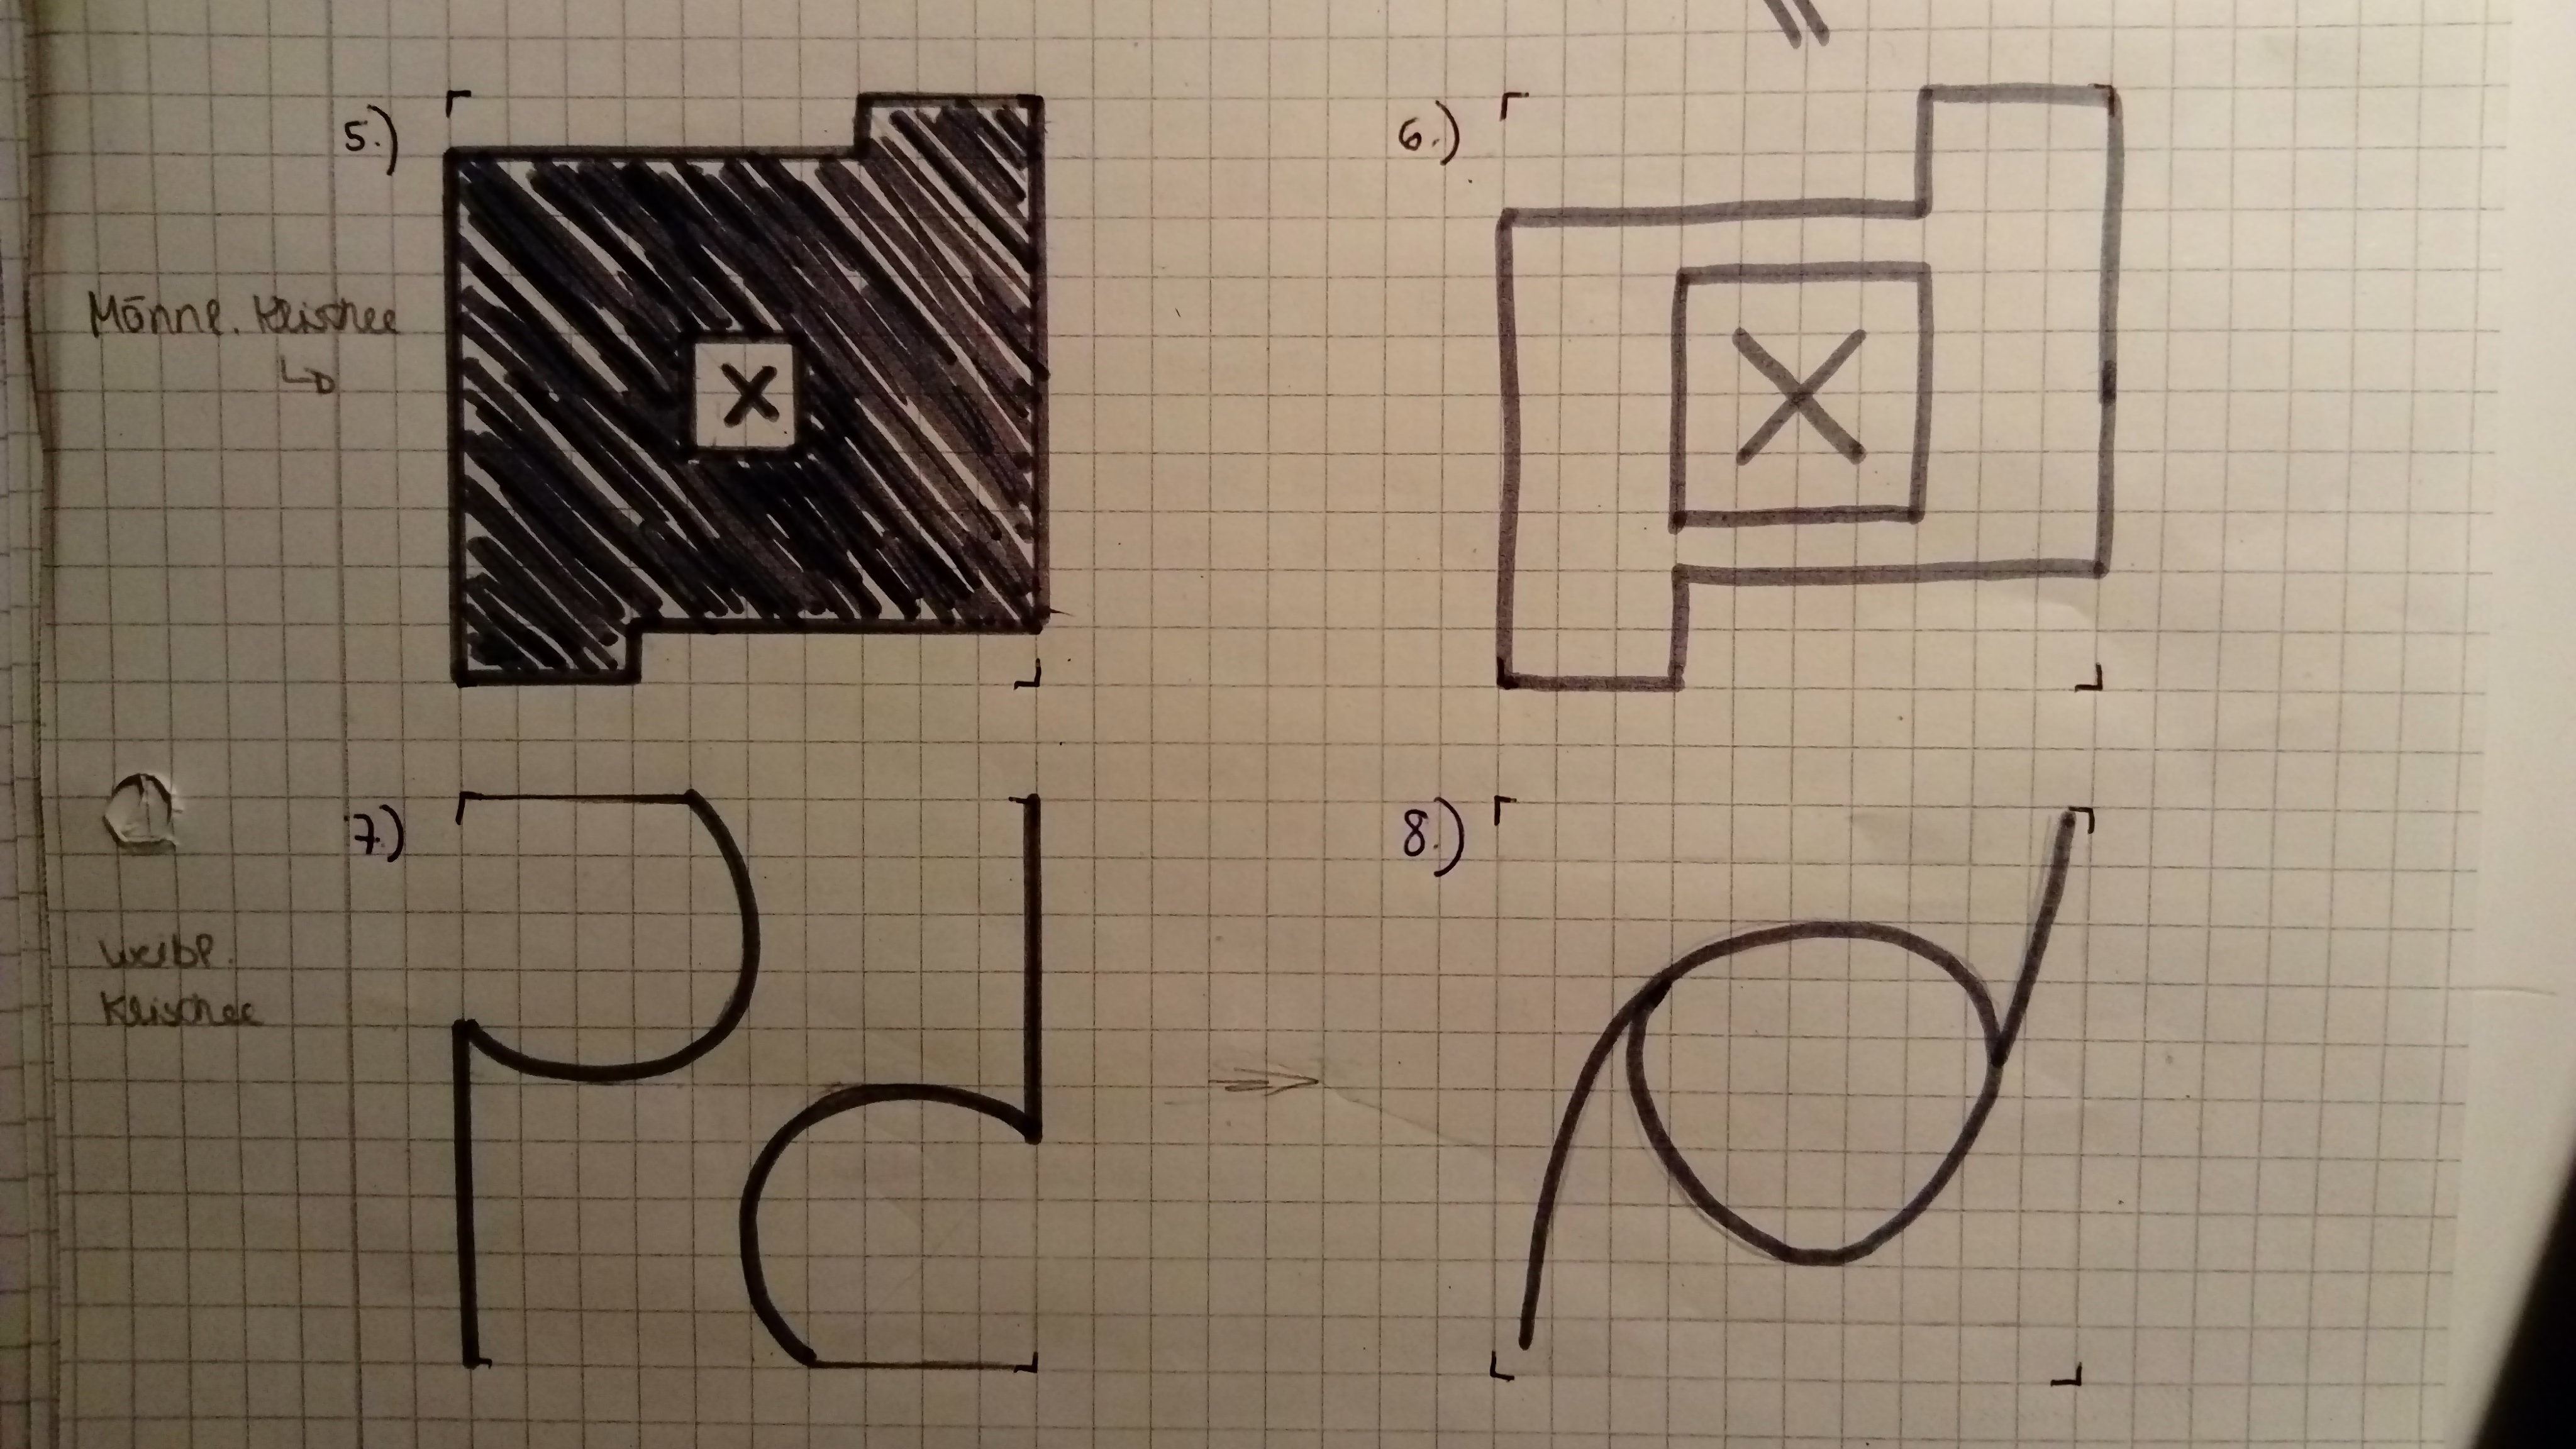 5.)
6.)
Männl. Klischee
7.)
8.)
weibl.
Klischee